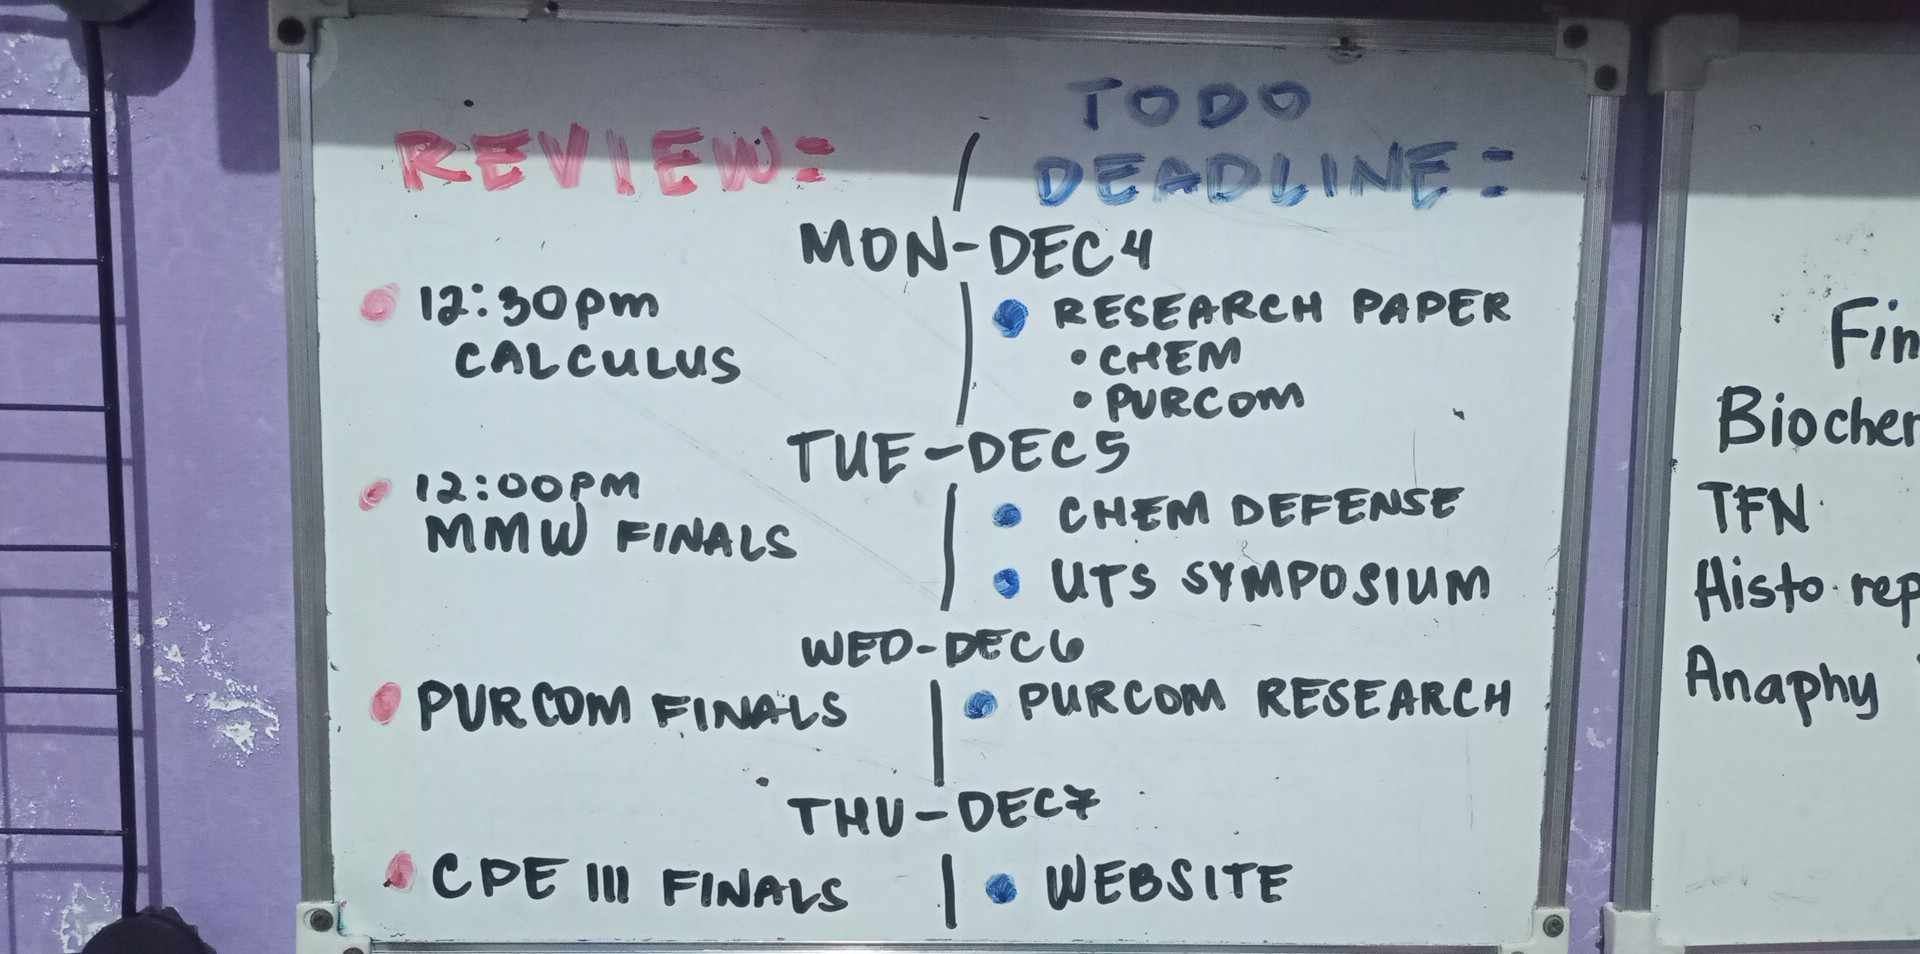 REVIEW:
TODO
DEADLINE:
MON-DEC 4
12:30pm
CALCULUS
RESEARCH PAPER
• CHEM
• PURCOM
TUE-DEC 5
12:00PM
MMW FINALS
CHEM DEFENSE
UTS SYMPOSIUM
WED-DEC 6
PURCOM FINALS
PURCOM RESEARCH
THU-DEC 7
CPE III FINALS
WEBSITE
TFN
Histo
Anaphy